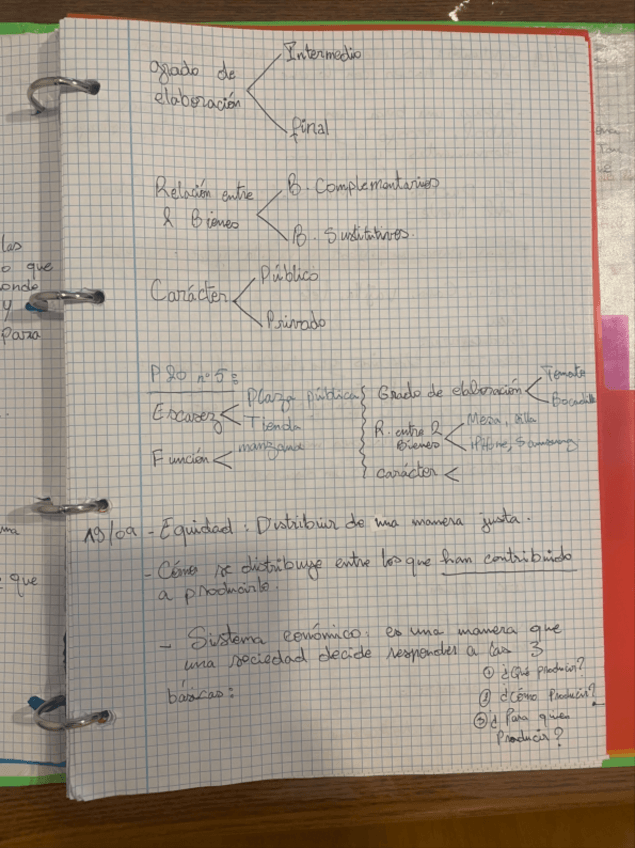 Grado de
elaboración
Intermedio
final
Relación entre
2 Bienes
B. Complementarios
B. Sustitutivos.
Carácter
Público
Privado
P 20 nº 5:
Escasez
Plaza pública
Tienda
Función
manzana
Grado de elaboración
Tomate
Bocadillo
R. entre 2
Bienes
Mesa, silla
iPhone, Samsung
carácter
19/09 - Equidad: Distribuir de una manera justa.
- Cómo se distribuye entre los que han contribuido
a producirlo.
- Sistema económico: es una manera que
una sociedad decide responder a las 3
básicas:
① ¿Qué producir?
② ¿Cómo Producir?
③ ¿Para quien
Producir?
las
o que
onde
y
para
que